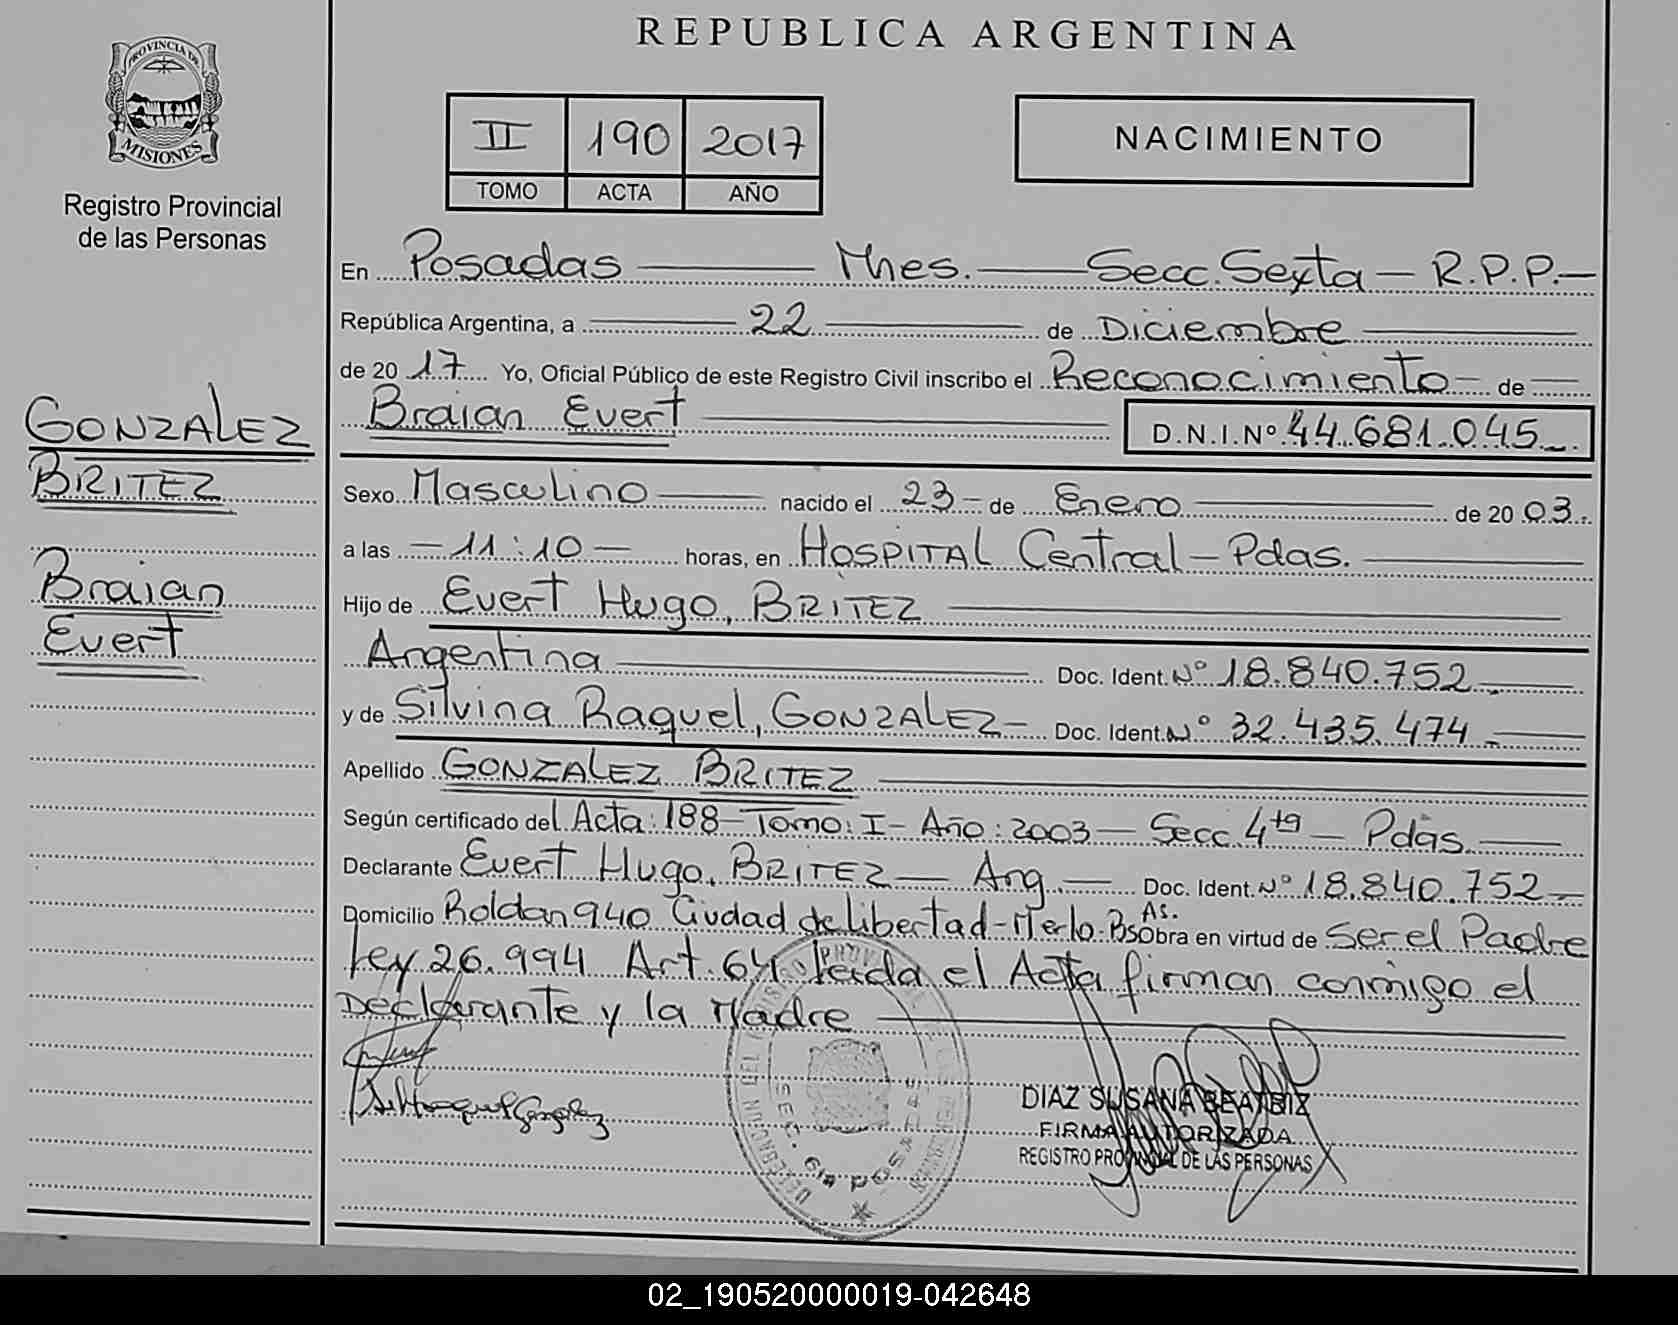 REPUBLICA ARGENTINA
PROVINCIA DE
MISIONES
Registro Provincial
de las Personas
II 190 2017
TOMO ACTA AÑO
NACIMIENTO
GONZALEZ
BRITEZ
Braian
Evert
En Posadas — Mnes. — Secc. Sexta — R.P.P.—
República Argentina, a — 22 — de Diciembre —
de 2017 Yo, Oficial Público de este Registro Civil inscribo el Reconocimiento — de —
Braian Evert — D.N.I.Nº 44.681.045_.
Sexo Masculino — nacido el 23 — de Enero — de 2003.
a las — 11:10 — horas, en HOSPITAL Central — Pdas. —
Hijo de Evert Hugo, BRITEZ —
Argentina — Doc. Ident. Nº 18.840.752 —
y de Silvina Raquel, GONZALEZ — Doc. Ident. Nº 32.435.474 —
Apellido GONZALEZ BRITEZ —
Según certificado del Acta: 188 — Tomo: I — Año: 2003 — Secc. 4ta — Pdas. —
Declarante Evert Hugo, BRITEZ — Arg. — Doc. Ident. Nº 18.840.752 —
Domicilio Roldan 940 Ciudad de libertad - Merlo - Bs As. Obra en virtud de Ser el Padre
Ley 26.994 Art. 64 leida el Acta firman conmigo el
Declarante y la Madre —
DIAZ SUSANA BEATRIZ
FIRMA AUTORIZADA
REGISTRO PROVINCIAL DE LAS PERSONAS
02_190520000019-042648